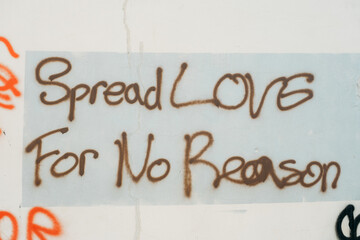 Spread LOVE
For No Reason
OR